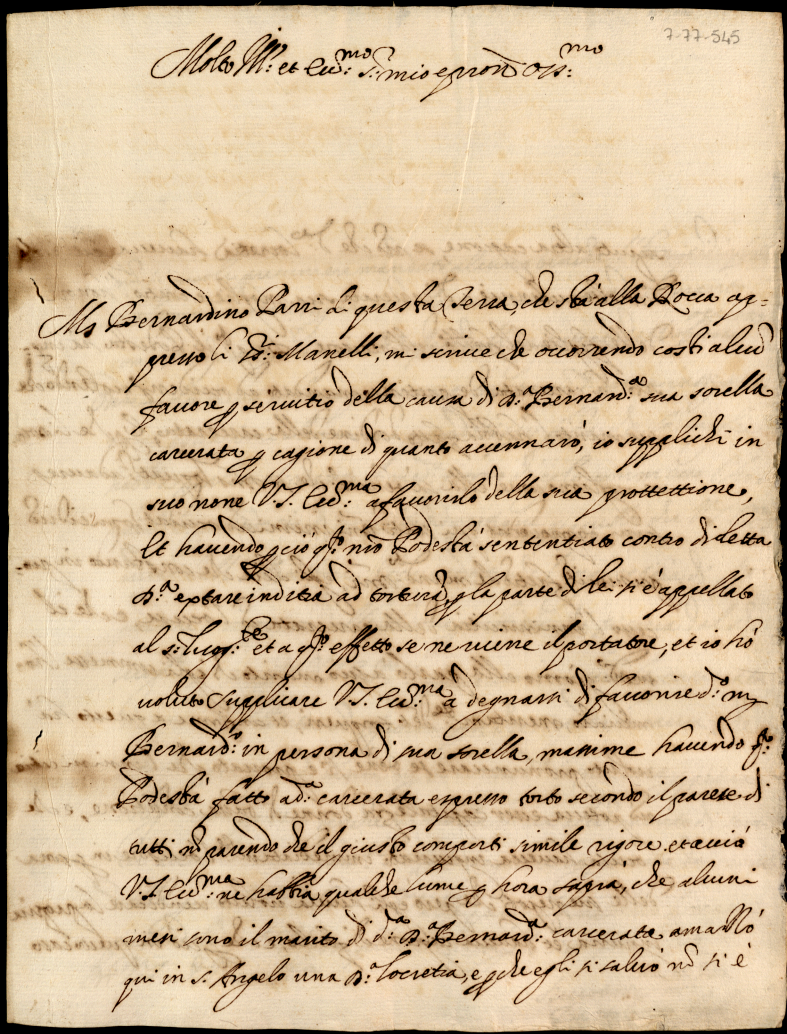 7-77-545
Molto Ill.e et Ecc.mo S.r mio e pron Oss.mo
Ms Bernardino Parri di questa Terra, che stà alla Rocca ap=
presso li SS.ri Manelli, mi scrive che occorrendo costì alcun
favore p servitio della causa di D.a Bernard.a sua sorella
carcerata p cagione di quanto accennarò, io supplichi in
suo nome V.S. Ecc.ma a favorirlo della sua protettione,
Et havendo p ciò q.to nro Podestà sententiato contro di detta
D.a extare inditia ad torturã, p la parte di lei si è appellato
al s.r luog.te et a q.to effetto se ne viene il portatore, et io hò
voluto supplicare V.S. Ecc.ma à degnarsi di favorire d.o m
Bernard.o in persona di sua sorella, massime havendo q.o
Podestà fatto a d.a carcerata espresso torto secondo il parere di
tutti nõ parendo che il giusto comporti simile rigore, et acciò
V.S. Ecc.ma ne habbia qualche lume p hora saprà, che alcuni
mesi sono il marito di d.a D.a Bernard.a carcerata amazzò
qui in s. Angelo una D.a Locretia, e p che egli si salvò nõ si è